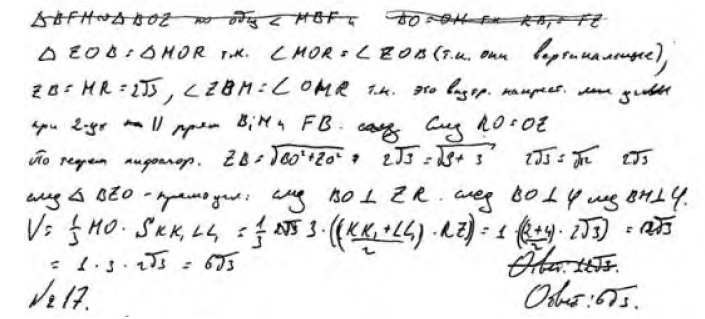 △BFM ∾ △BOZ по общ ∠MBF и BO = OM т.к. RB₁ = FZ
△ZOB = △MOR т.к. ∠MOR = ∠ZOB (т.к. они вертикальные),
ZB = MR = 2√3, ∠ZBM = ∠OMR т.к. это внутр. накрест. леж углы
при 2-ух || прям B₁M и FB. след RO = OZ
По теорем пифагор. ZB = √(BO²+ZO²) 2√3 = √(9+3) 2√3 = √12 2√3
след △BZO - прямоугл: след BO ⊥ ZR. след BO ⊥ φ след BM ⊥ φ.
V = 1/3 MO · S KK₁LL₁ = 1/3 3 · ((KK₁+LL₁)/2 · RZ) = 1 · ((2+4)/2 · 2√3) = 12√3
= 1 · 3 · 2√3 = 6√3 Ответ: 12√3.
№17. Ответ: 6√3.